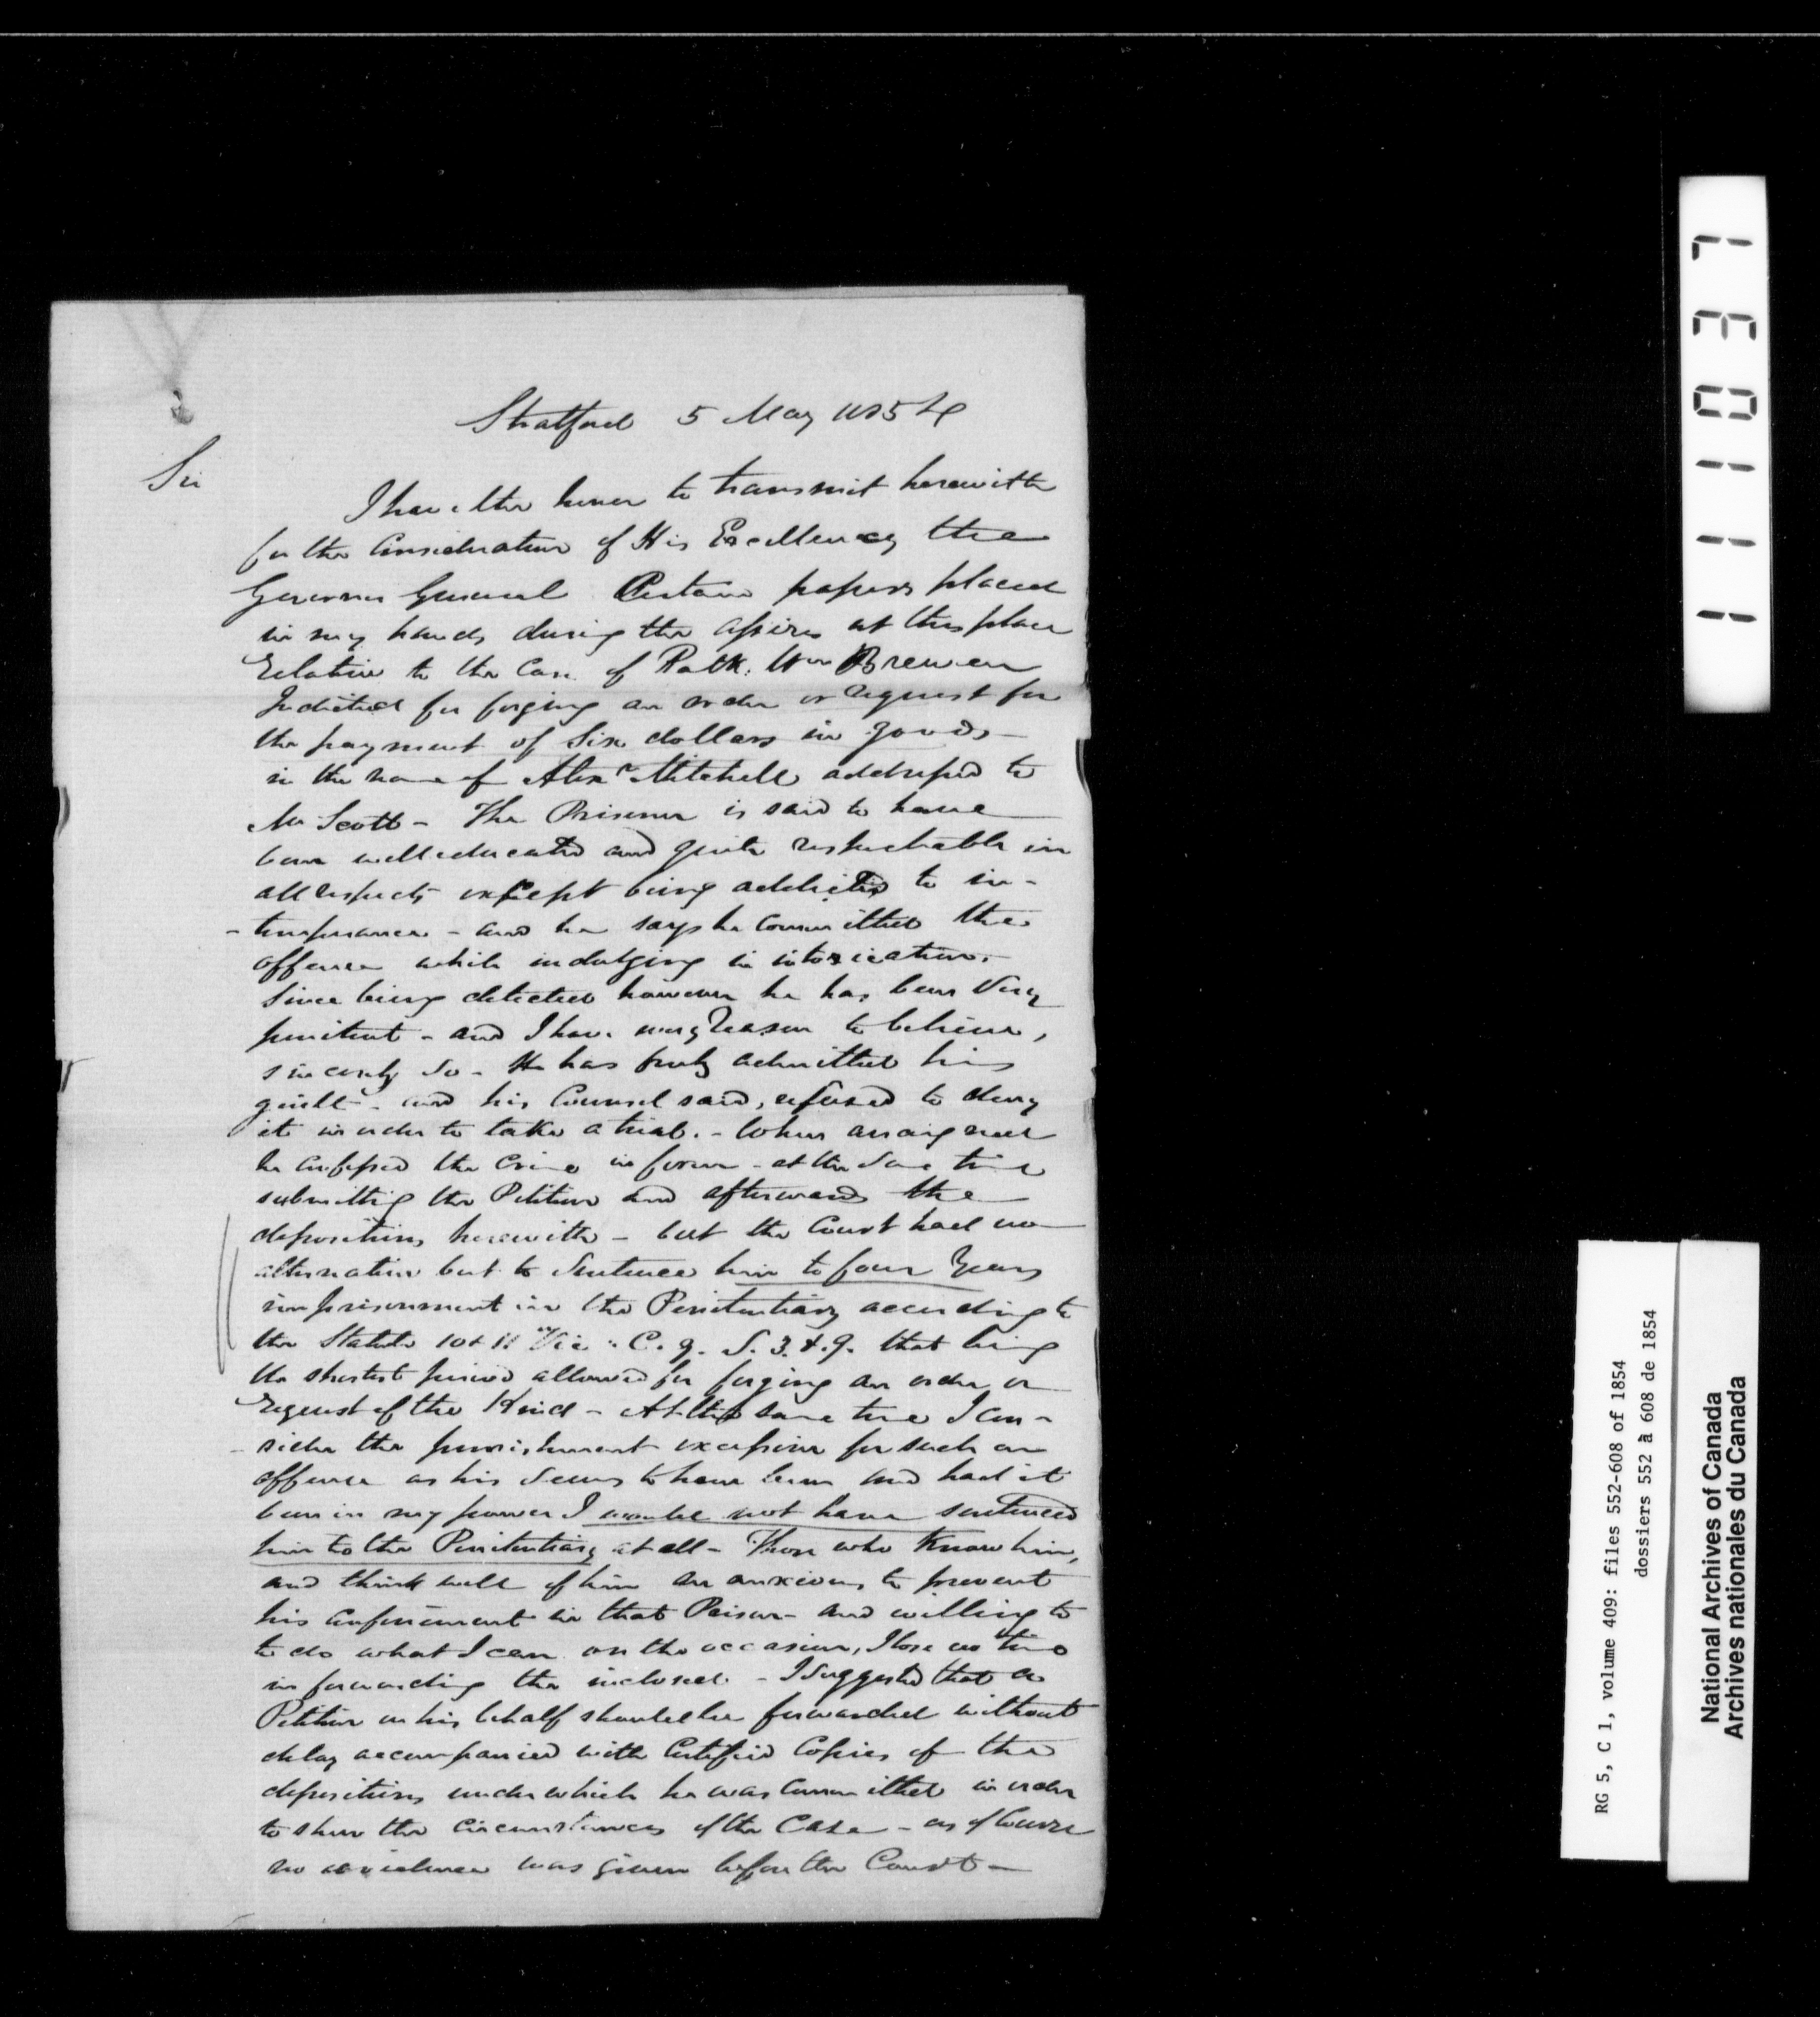 Stratford 5 May 1854
Sir
I have the honor to transmit herewith
for the Consideration of His Excellency the
Governor General Certain papers placed
in my hands during the assizes at this place
relative to the Case of Patk. Wm Brewen
Indicted for forging an order or request for
the payment of Six dollars in goods -
in the name of Alexr Mitchell addressed to
Mr Scott - The Prisoner is said to have
been well educated and quite respectable in
all respects except being addicted to in-
-temperance - and he says he committed the
offence while indulging in intoxication.
Since being detected however he has been very
penitent - and I have every reason to believe,
sincerely so - He has freely admitted his
guilt - and his Counsel said, refused to deny
it in order to take a trial. - When arraigned
he confessed the Crime in form - at the same time
submitting the Petition and afterwards the
depositions herewith - but the Court had no
alternative but to Sentence him to four Years
imprisonment in the Penitentiary according to
the Statute 10 & 11 Vic: C. 9. S. 3. & 9. that being
the shortest period allowed for forging an order or
request of the Kind - At the same time I con-
- sider the punishment excessive for such an
offence as his seems to have been and had it
been in my power I would not have sentenced
him to the Penitentiary at all - Those who Know him,
and think well of him are anxious to prevent
his confinement in that Prison - and willing to
to do what I can on the occasion, I lose no time
in forwarding the inclosed - I suggested that a
Petition on his behalf should be forwarded without
delay accompanied with Certified Copies of the
depositions under which he was committed in order
to shew the Circumstances of the Case - as of Course
no evidence was given before the Court -
111037
RG 5, C 1, volume 409: files 552-608 of 1854
dossiers 552 à 608 de 1854
National Archives of Canada
Archives nationales du Canada